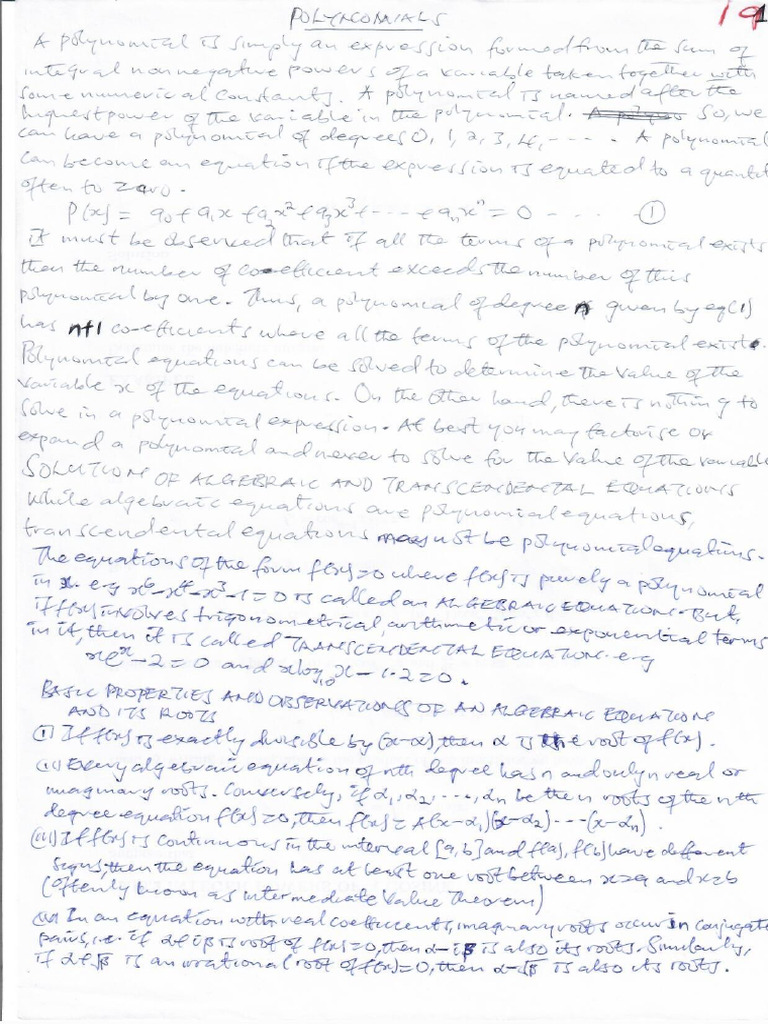 POLYNOMIALS
19
A polynomial is simply an expression formed from the sum of
integral nonnegative powers of a variable taken together with
some numerical constants. A polynomial is named after the
highest power of the variable in the polynomial. So, we
can have a polynomial of degrees 0, 1, 2, 3, 4, - - - - . A polynomial
can become an equation if the expression is equated to a quantit
often to zero.
P(x) = a₀ + a₁x + a₂x² + a₃x³ + - - - + aₙxⁿ = 0 - - - ①
It must be observed that if all the terms of a polynomial exists
then the number of co-efficient exceeds the number of this
polynomial by one. Thus, a polynomial of degree n given by eq(1)
has n+1 co-efficients where all the terms of the polynomial exist.
Polynomial equations can be solved to determine the value of the
variable x of the equations. On the other hand, there is nothing to
solve in a polynomial expression. At best you may factorise or
expand a polynomial and never to solve for the value of the variable
SOLUTION OF ALGEBRAIC AND TRANSCENDENTAL EQUATIONS
While algebraic equations are polynomial equations,
transcendental equations may not be polynomial equations.
The equations of the form f(x)=0 where f(x) is purely a polynomial
in x. e.g x⁶-x⁴-x³-1=0 is called an ALGEBRAIC EQUATIONS. But,
if f(x) involves trigonometrical, arithmetic or exponential terms
in it, then it is called TRANSCENDENTAL EQUATION. e.g
xeˣ-2=0 and xlog₁₀x-1.2=0.
BASIC PROPERTIES AND OBSERVATIONS OF AN ALGEBRAIC EQUATION
AND ITS ROOTS
(i) If f(x) is exactly divisible by (x-α), then α is the root of f(x).
(ii) Every algebraic equation of nth degree has n and only n real or
imaginary roots. Conversely, if α₁, α₂, ---, αₙ be the n roots of the nth
degree equation f(x)=0, then f(x)=A(x-α₁)(x-α₂)---(x-αₙ).
(iii) If f(x) is continuous in the interval [a,b] and f(a), f(b) have different
signs, then the equation has at least one root between x=a and x=b
(Oftenly known as intermediate Value Theorem)
(iv) In an equation with real coefficients, imaginary roots occur in conjugate
pairs, i.e. if α+iβ is root of f(x)=0, then α-iβ is also its roots. Similarly,
if α+√β is an irrational root of f(x)=0, then α-√β is also its roots.